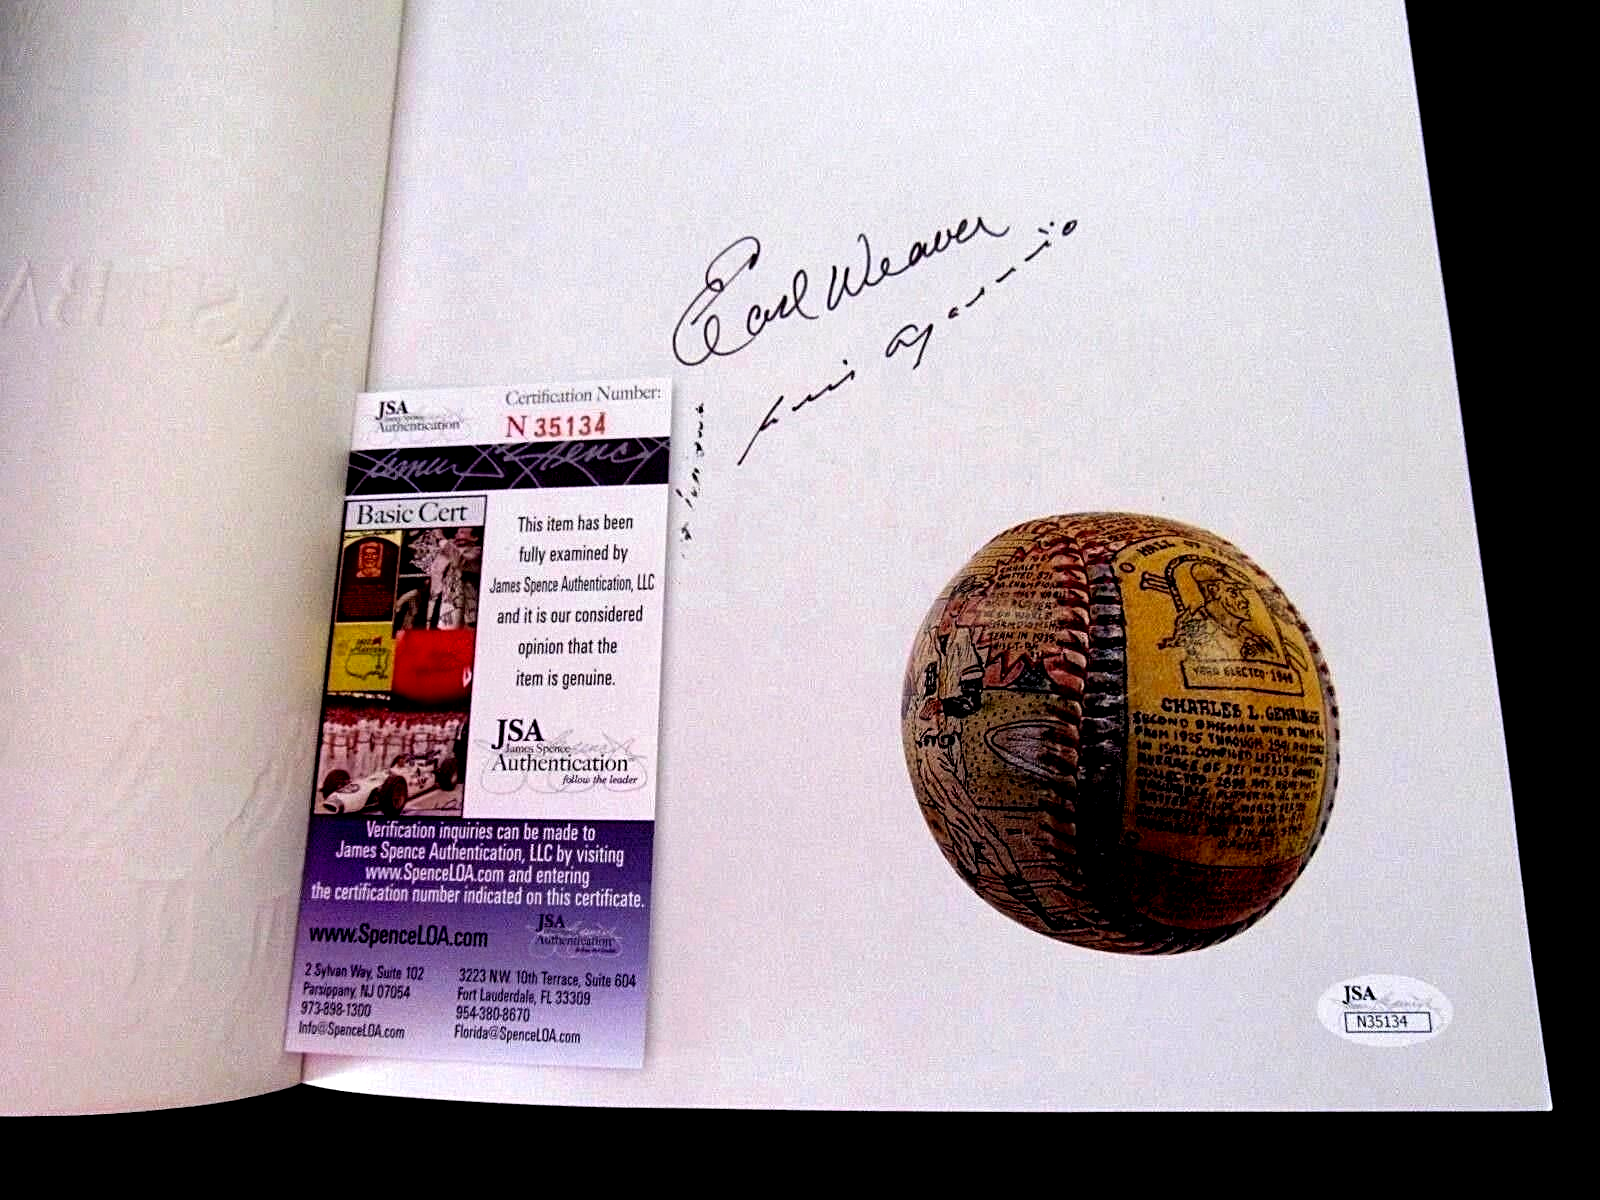 Earl Weaver
Luis Aparicio
JSA
Authentication
Certification Number:
N 35134
Basic Cert
This item has been
fully examined by
James Spence Authentication, LLC
and it is our considered
opinion that the
item is genuine.
JSA
James Spence
Authentication
follow the leader
Verification inquiries can be made to
James Spence Authentication, LLC by visiting
www.SpenceLOA.com and entering
the certification number indicated on this certificate.
www.SpenceLOA.com
JSA
Authentication
2 Sylvan Way, Suite 102
Parsippany, NJ 07054
973-898-1300
Info@SpenceLOA.com
3223 N.W. 10th Terrace, Suite 604
Fort Lauderdale, FL 33309
954-380-8670
Florida@SpenceLOA.com
HALL OF
YEAR ELECTED 1949
CHARLES L.
SECOND BASEMAN WITH
FROM 1925 THROUGH 1941
IN 1942. COMPILED LIFETIME
AVERAGE OF
TEAM IN 1935
JSA
N35134